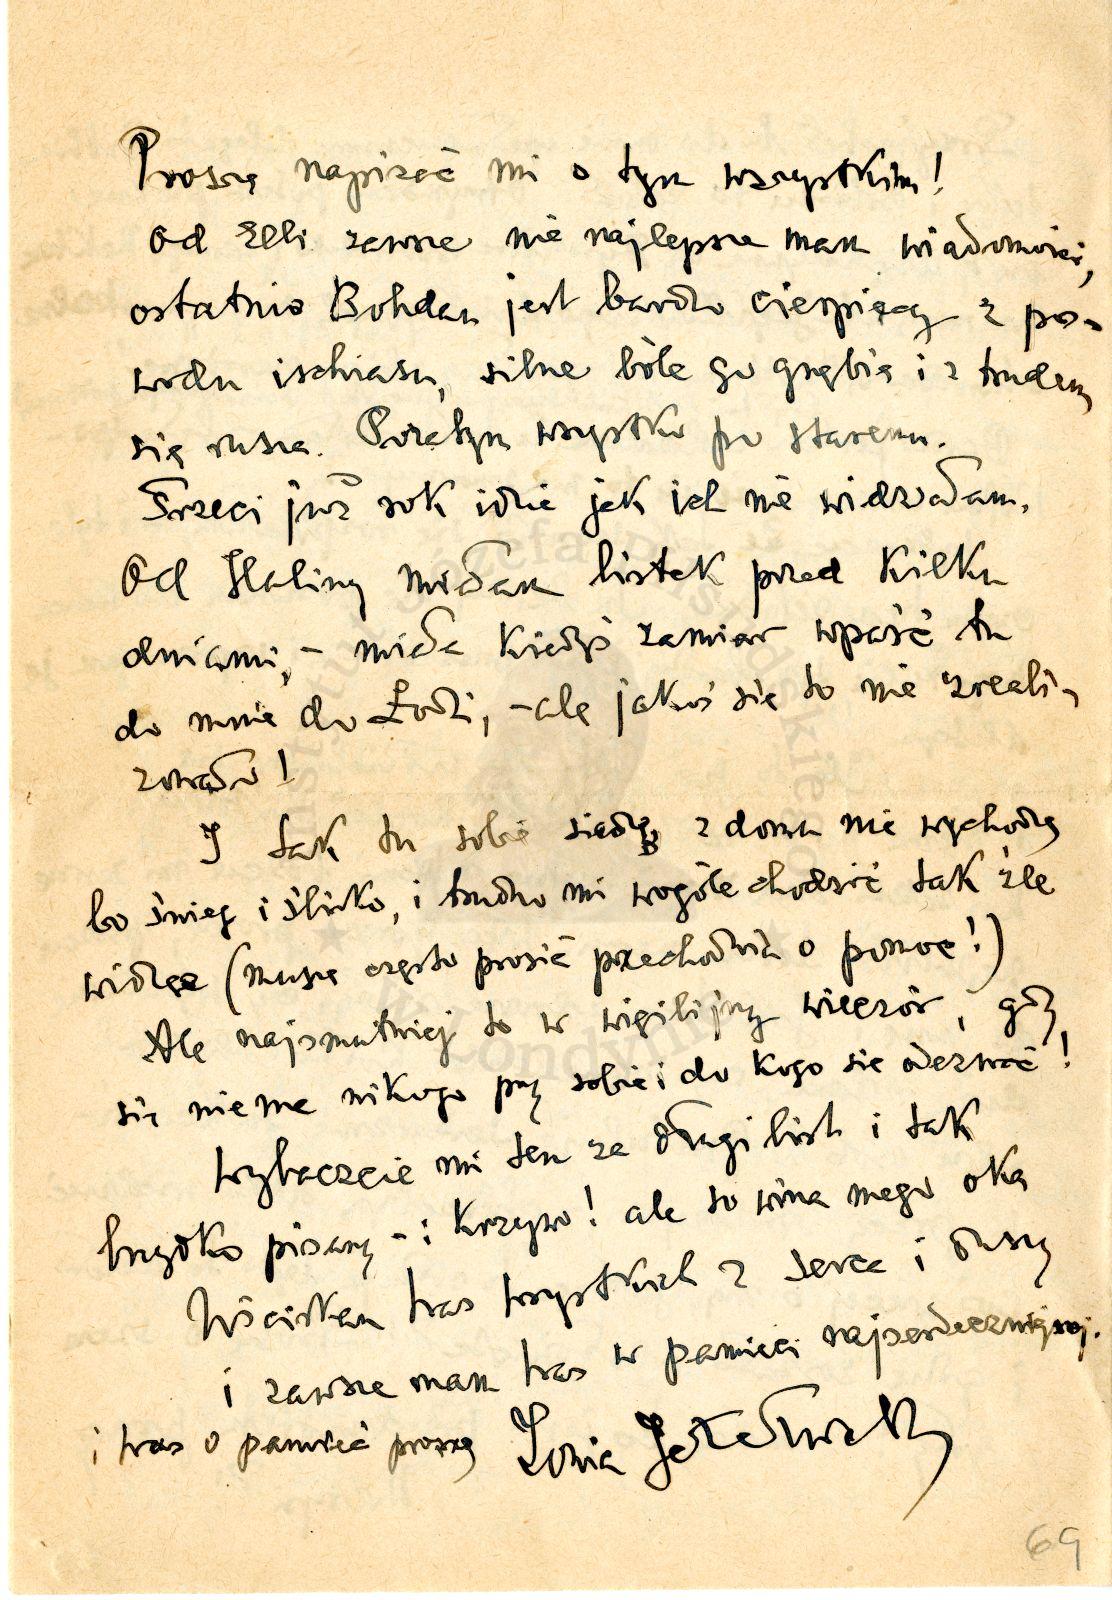 Proszę napisać mi o tym wszystkim!
Od Elli zawsze nie najlepsze mam wiadomości,
ostatnio Bohdan jest bardzo cierpiący z po-
wodu ischiasu, silne bóle go gnębią i z trudem
się rusza. Poza tym wszystko po staremu.
Trzeci już rok idzie jak ich nie widziałam.
Od Haliny miałam listek przed kilku
dniami, - miała kiedyś zamiar wpaść tu
do mnie do Łodzi, - ale jakoś się to nie zreali-
zowało!
I tak tu sobie siedzę, z domu nie wychodzę
bo śnieg i ślisko, i trudno mi wogóle chodzić tak źle
widzę (muszę często prosić przechodnia o pomoc!)
Ale najsmutniej to w wigilijny wieczór, gdy
się nie ma nikogo przy sobie i do kogo się odezwać!
Wybaczcie mi ten za długi list i tak
brzydko pisany - i krzywo! ale to wina mego oka
Uściskam Was wszystkich z serca i duszy
i zawsze mam Was w pamięci najserdeczniejszej.
i Was o pamięć proszę Zonia
Instytut Józefa Piłsudskiego
w Londynie
69